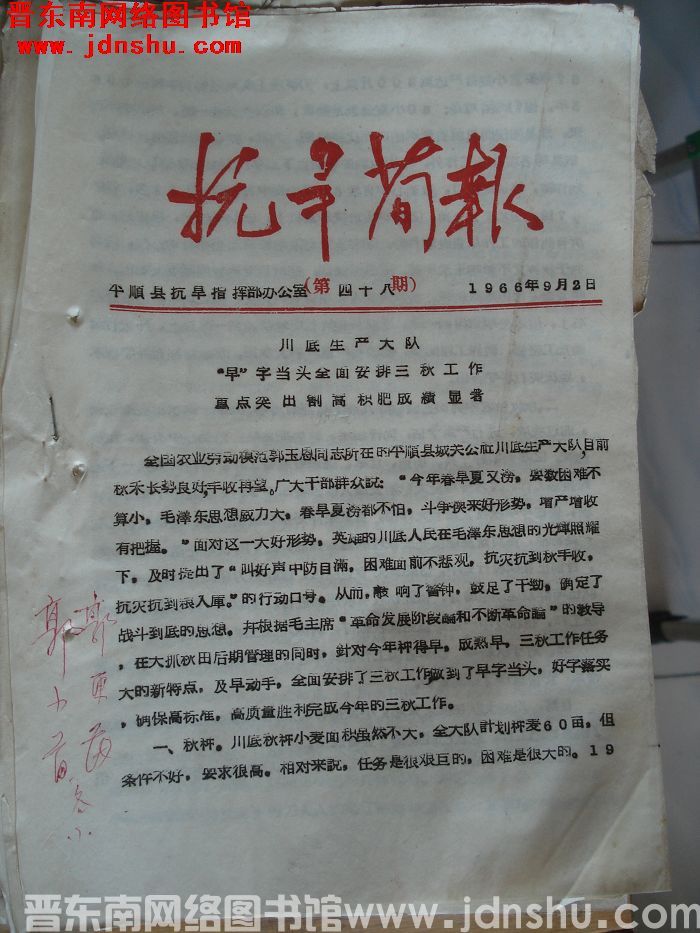 晋东南网络图书馆
www.jdnshu.com
抗旱简报
平順县抗旱指挥部办公室(第四十八期) 1966年9月2日
川底生产大队
“早”字当头全面安排三秋工作
重点突出制高积肥成績显著
全国农业劳动模范郭玉恩同志所在的平順县城关公社川底生产大队,目前
秋禾长势良好,丰收再望。广大干部群众説：“今年春旱夏又涝，要数困难不
算小，毛澤东思想威力大，春旱夏涝都不怕，斗争换来好形势，增产增收
有把握。”面对这一大好形势，英雄的川底人民在毛澤东思想的光輝照耀
下，及时提出了“叫好声中防自满，困难面前不悲观，抗灾抗到秋丰收，
抗灾抗到粮入庫。”的行动口号。从而，敲响了警钟，鼓足了干劲，确定了
战斗到底的思想。并根据毛主席“革命发展阶段論和不断革命論”的教导
，在大抓秋田后期管理的同时，針对今年种得早，成熟早，三秋工作任务
大的新特点，及早动手，全面安排了三秋工作做到了早字当头，好字落实
，确保高标准，高质量胜利完成今年的三秋工作。
一、秋种。川底秋种小麦面积虽然不大，全大队計划种麦60亩，但
条件不好，要求很高。相对来説，任务是很艰巨的，困难是很大的。19
郭小
晋东南网络图书馆 www.jdnshu.com